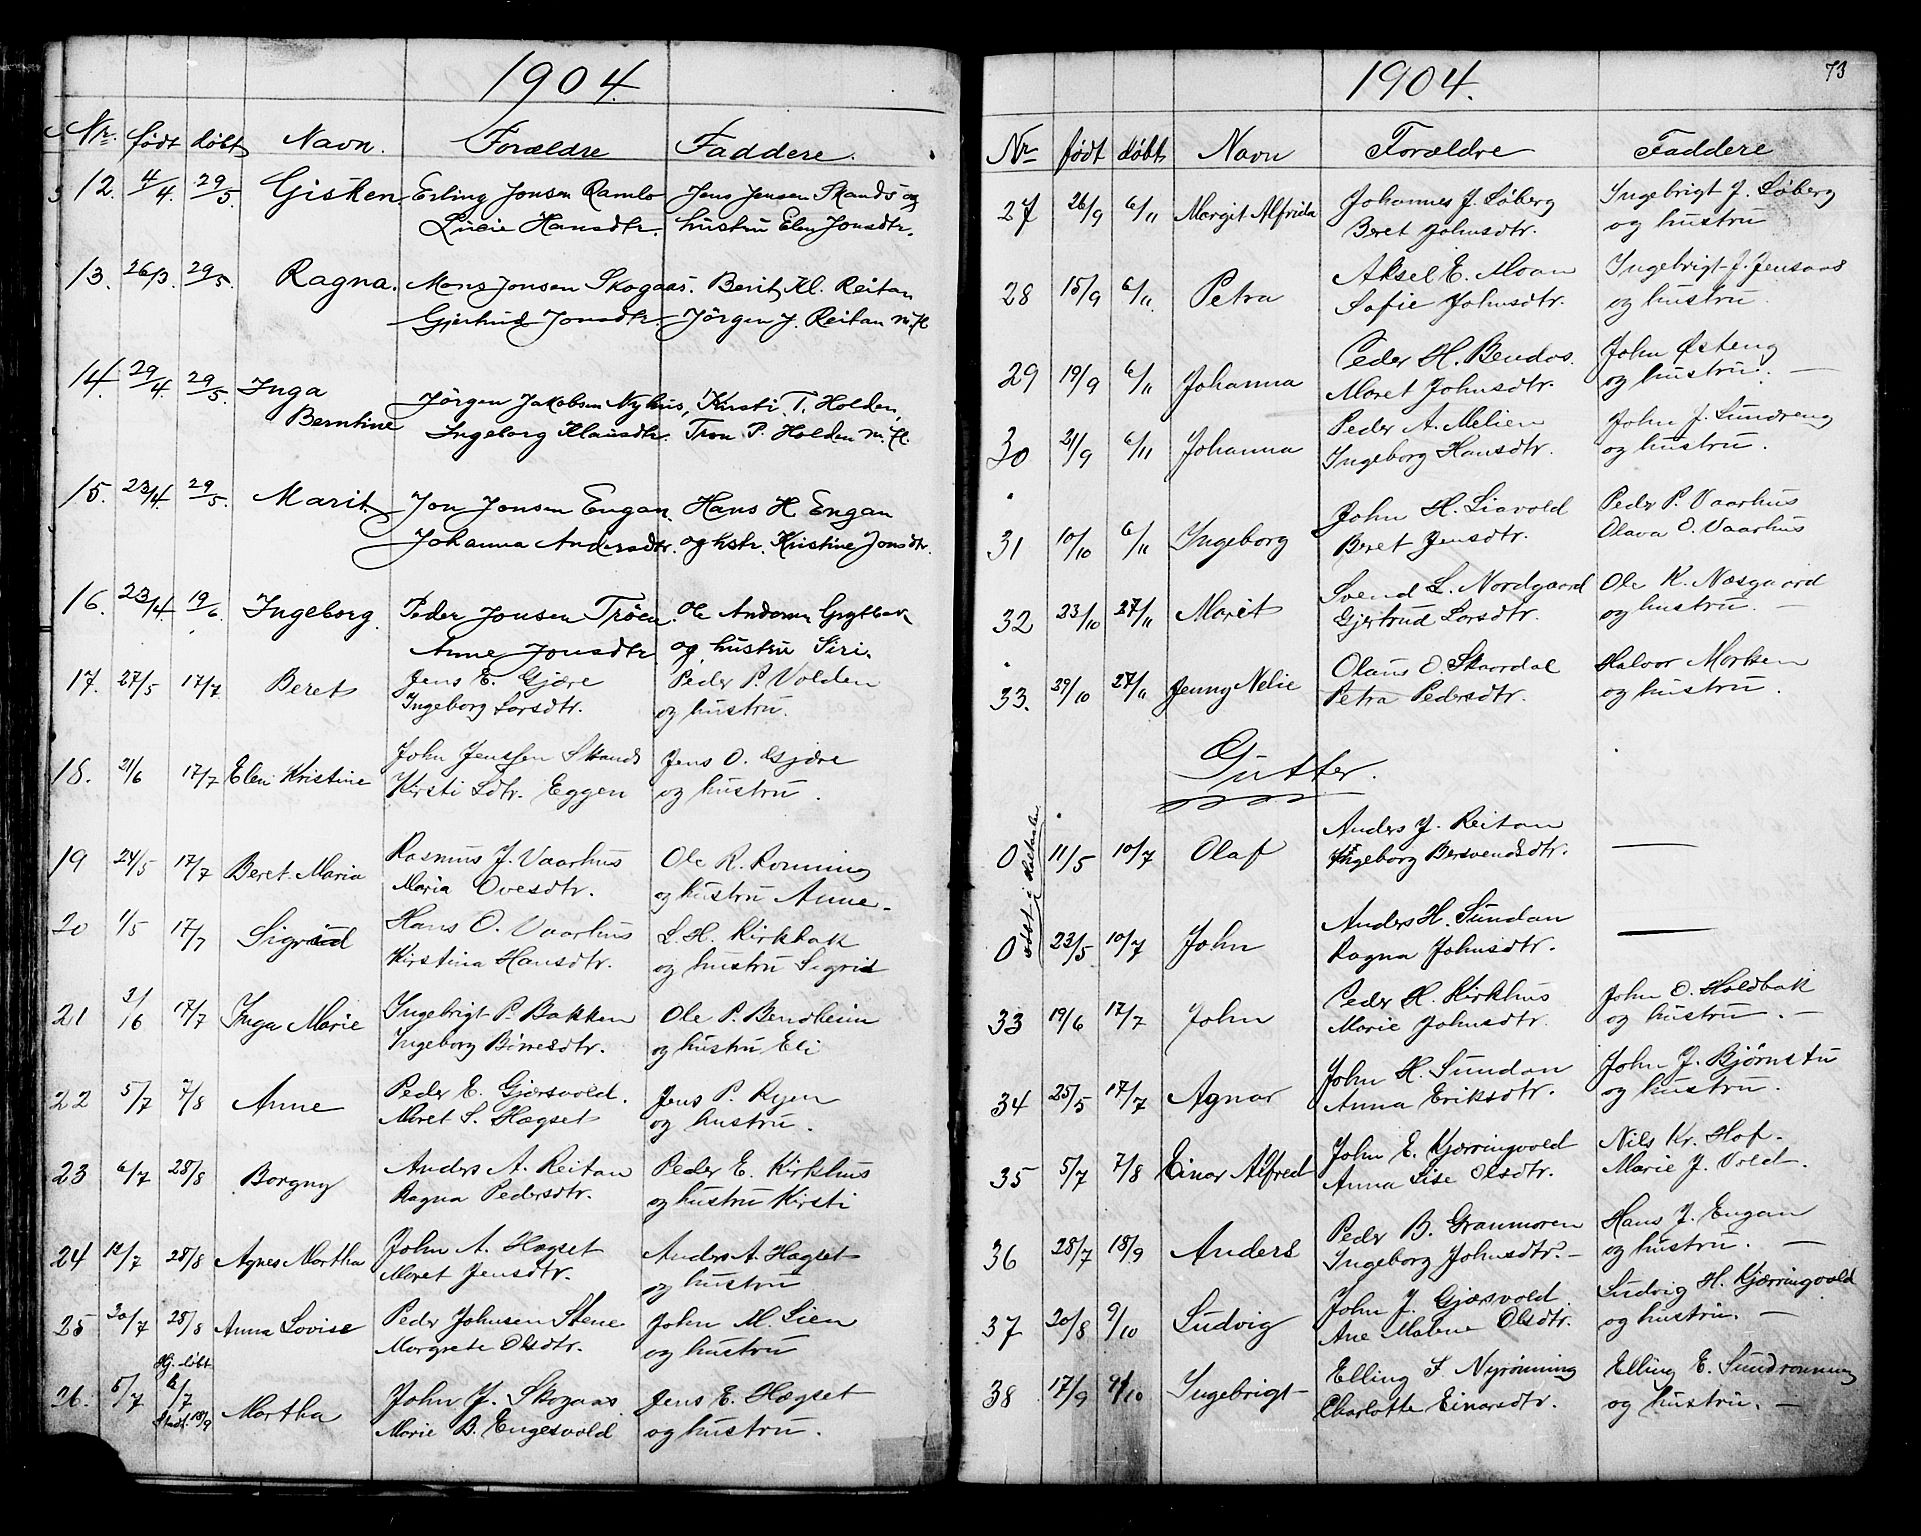 1904.
Nr. født døbt Navn. Forældre Faddere.
12. 4/4. 29/5. Gisken Erling Jonsen Ramlo Jens Jensen Skands og
Lucie Hansdtr. hustru Elen Jonsdtr.
13. 26/3. 29/5. Ragna. Mons Jonsen Skogaas. Berit Kl. Reitan
Gjertrud Jonsdtr. Jörgen J. Reitan m.fl
14. 29/4. 29/5. Inga Jörgen Jakobsen Nyhus, Kirsti T. Holden,
Berntine Ingeborg Klausdtr. Tron P. Holden m.fl.
15. 23/4. 29/5. Marit Jon Jonsen Engan. Hans H Engan
Johanna Andersdtr. og hstr. Kristine Jonsdtr.
16. 23/4. 19/6. Ingeborg. Peder Jonsen Trøen. Ole Andersen
Anne Jonsdtr og hustru Siri.
17. 27/5 17/7. Beret Jens E. Gjære Peder P. Volden
Ingeborg Larsdtr. og hustru.
18. 21/6 17/7 Elen Kristine John Jenssen Skands Jens O. Gjære
Kirsti Ldtr. Eggen og hustru.
19 24/5 17/7 Beret Maria Rasmus J. Vaarhus Ole R. Rønning
Maria Ovesdtr. og hustru Anne.
20 1/5 17/7 Sigrid Hans O. Vaarhus L. H. Kirkbak
Kirstina Hansdtr. og hustru Sigrid
21 3/16 17/7 Inga Marie Ingebrigt P. Bakken Ole P. Bendheim
Ingeborg Börresdtr. og hustru Eli
22 5/7 7/8 Anne Peder E. Gjersvold. Jens P. Ryen
Maret S. Hægset og hustru.
23 6/7 28/8 Borgny Anders A. Reitan Peder E. Kirkhus
Ragna Pedersdtr. og hustru Kirsti
24 12/7 28/8 Agnes Martha John A. Hægset Anders A. Hægset
Maret Jensdtr. og hustru
25 30/7 28/8 Anna Lovise Peder Johnsen Stene John M. Lien
Margrete Olsdtr. og hustru
26. 5/7 Hj. døbt 6/7 Stadf. 18/9 Martha John J. Skogaas Jens E. Hægset
Marie B. Engesvold og hustru.
73
1904.
Nr født døbt Navn Forældre Faddere
27 26/9 6/11 Margit Alfrida Johannes J. Løberg Ingebrigt J. Løberg
Beret Johnsdtr. og hustru
28 15/9 6/11 Petra Aksel E. Moan Ingebrigt J. Jensaas
Sofie Johnsdtr. og hustru.
29 19/9 6/11 Johanna Peder H. Bendos. John Østeng
Maret Johnsdtr. og hustru. —
30 21/9 6/11 Johanna Peder A. Melien John J. Sundeng
Ingeborg Hansdtr. og hustru.
31 10/10 6/11 Ingeborg John H. Liavold Peder P. Vaarhus
Beret Jensdtr. Olava O. Vaarhus
32 23/10 27/11 Maret Svend L. Nordgaard Ole K. Næsgaard
Gjertrud Larsdtr. og hustru. —
33. 29/10 27/11 Jenny Nelie Olaus O. Skaardal Halvor Morken
Petra Pedersdtr. og hustru.
Gutter.
døbt i Holtaalen
0 11/5 10/7 Olaf Anders J. Reitan —
Ingeborg Bersvendsdtr.
0 23/5 10/7 John Anders H. Sundan —
Ragna Johnsdtr.
33 19/6 17/7 John Peder H. Kirkhus John O. Holdbak
Marie Johnsdtr. og hustru. —
34 25/5 17/7 Agnar John H. Sundan John J. Bjørnstu
Anna Eriksdtr. og hustru.
35 5/7 7/8 Einar Alfred John E. Kjærringvold Nils Kr. Hof.
Anna Lise Olsdtr. Marie J. Vold.
36 28/7 18/9 Anders Peder B. Granmoren Hans J. Engan
Ingeborg Johnsdtr. — og hustru. —
37 20/8 9/10 Ludvig John J. Gjersvold Ludvig H. Kjærringvold
Ane Malene Olsdtr. og hustru. —
38 17/9 9/10 Ingebrigt Elling F. Nyrønning Elling E. Sundrønning
Charlotte Einarsdtr. og hustru. —